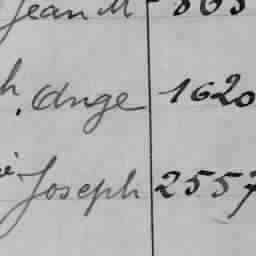 Jean M 863
h. Ange 1620
Joseph 2557